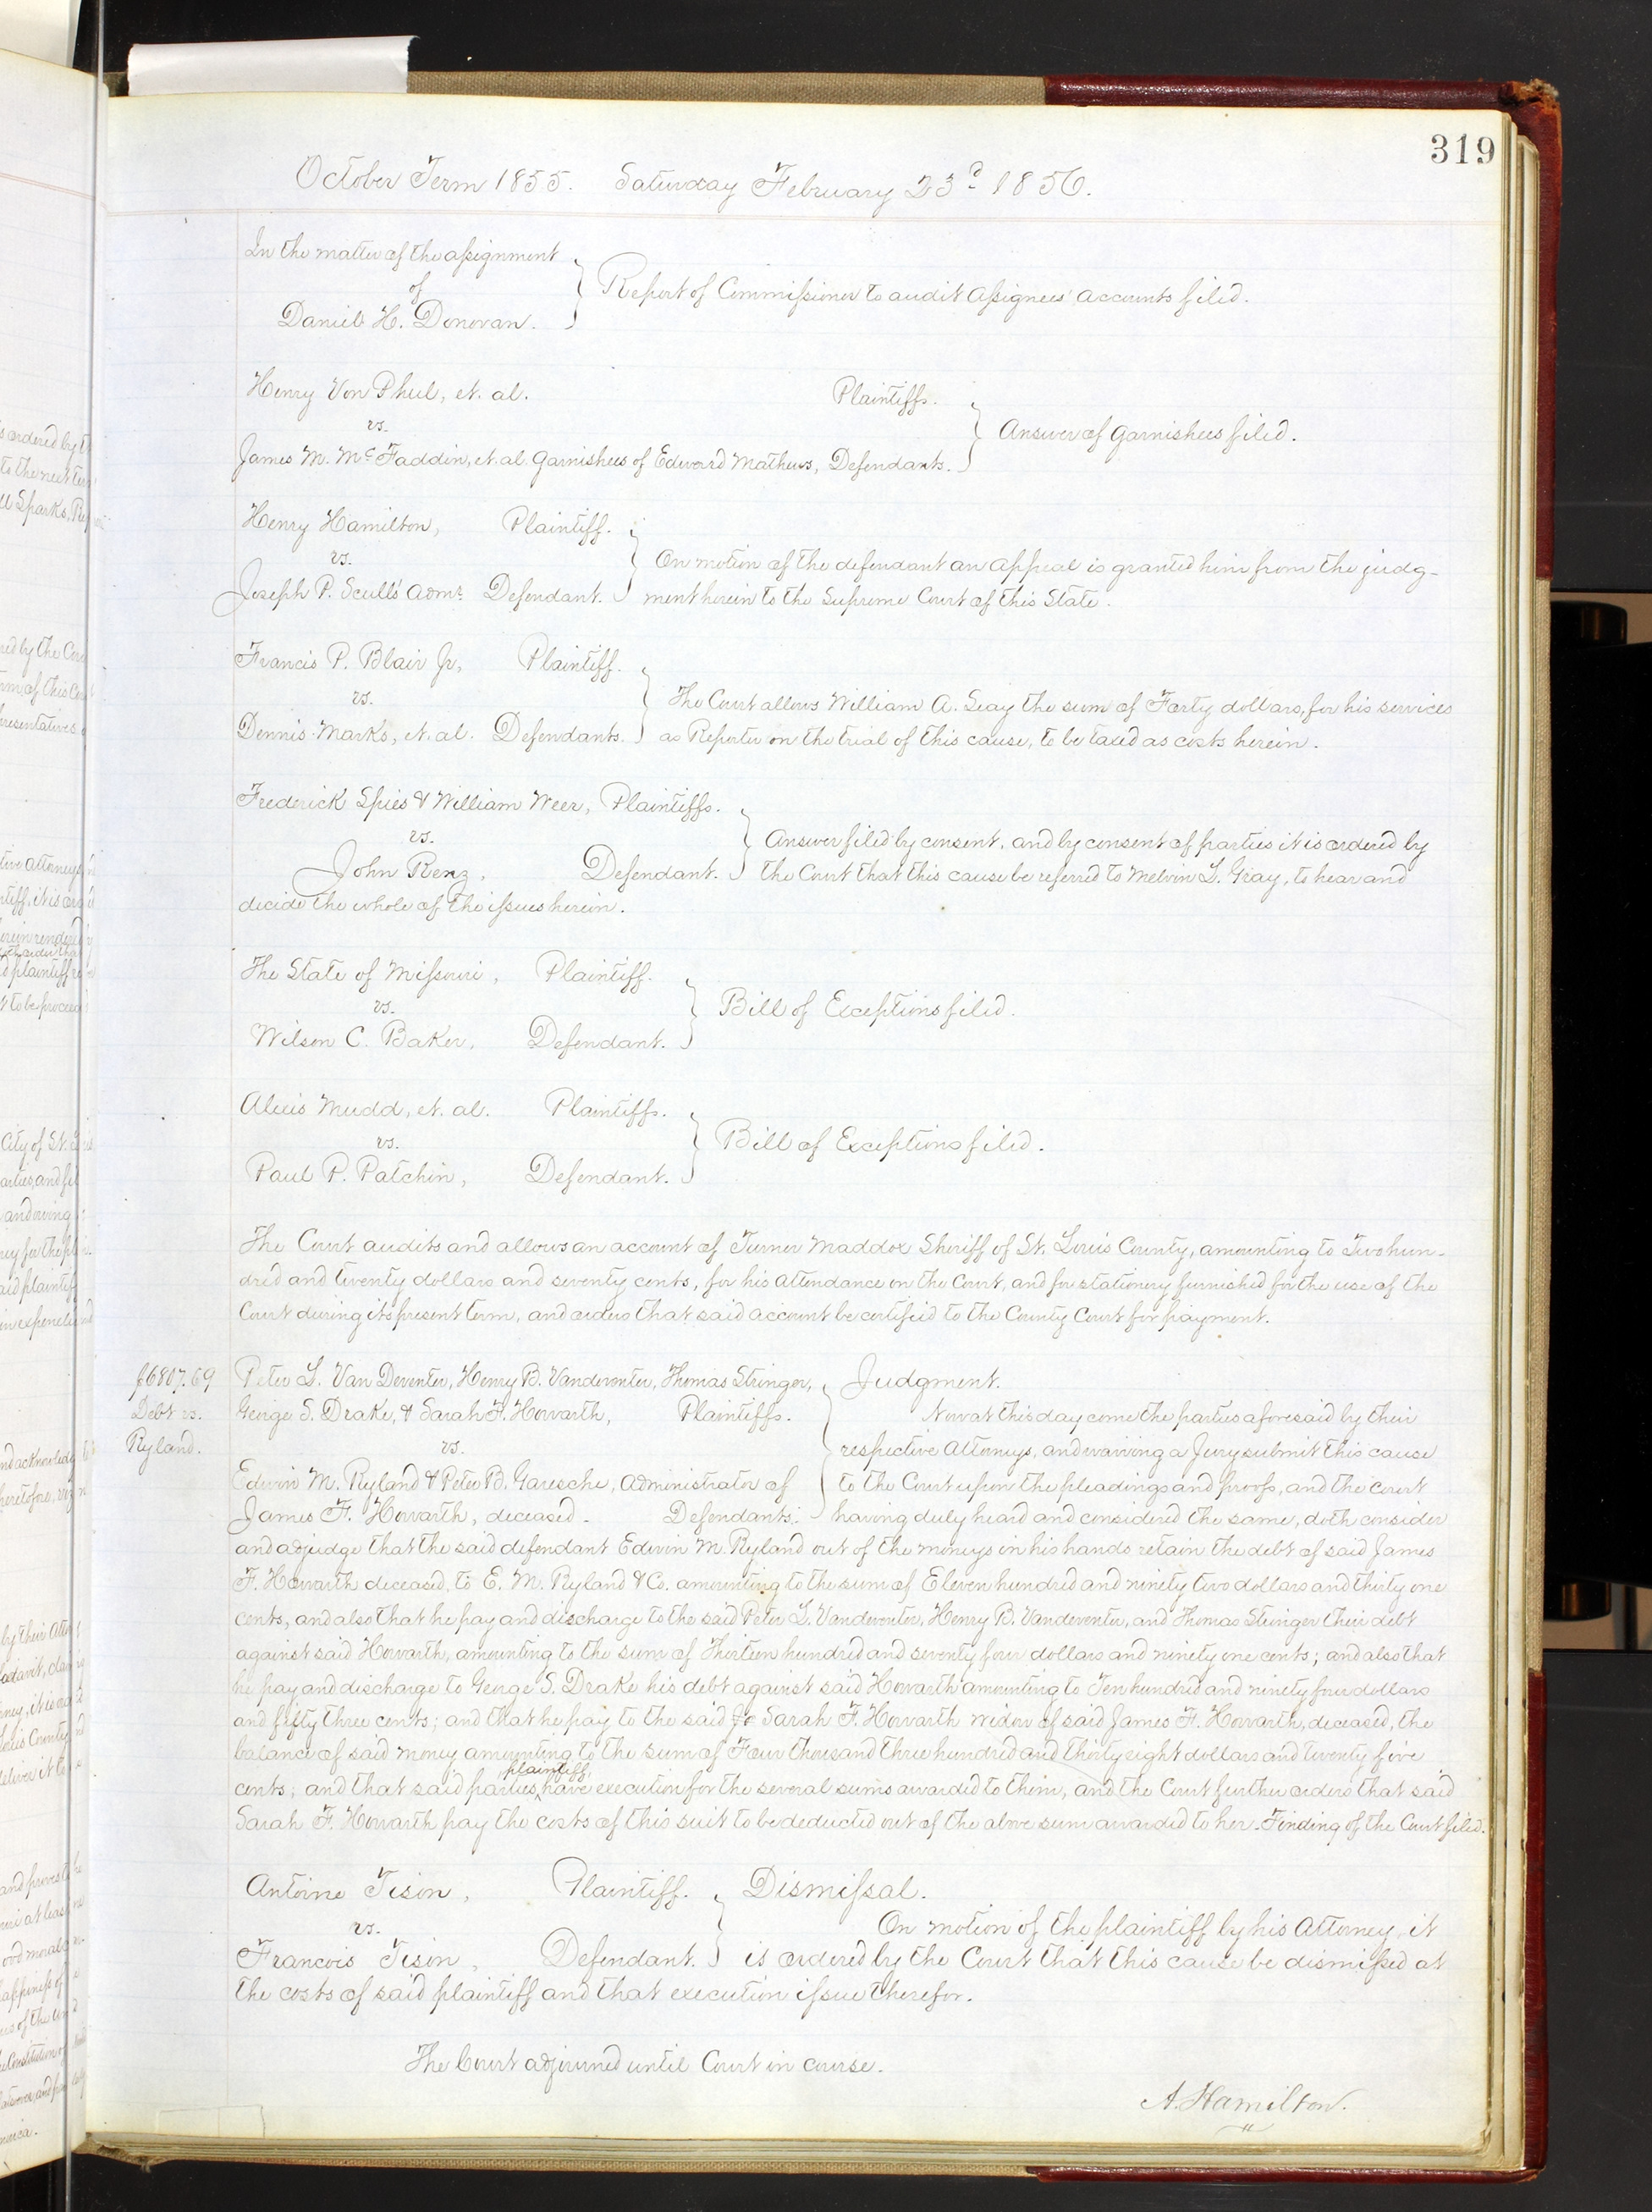 319
October Term 1855. Saturday February 23d 1856.
In the matter of the assignment
of
Daniel H. Donovan.
Report of Commissioner to audit Assignees' accounts filed.
Henry Von Phul, et. al. Plaintiffs.
vs.
James M. McFaddin, et. al. Garnishees of Edward Mathews, Defendants.
Answer of Garnishees filed.
Henry Hamilton, Plaintiff.
vs.
Joseph P. Sculls' Admr. Defendant.
On motion of the defendant an appeal is granted him from the judg-
ment herein to the Supreme Court of this State.
Francis P. Blair Jr, Plaintiff.
vs.
Dennis Marks, et. al. Defendants.
The Court allows William A. Seay the sum of Forty dollars, for his services
as Reporter on the trial of this cause, to be taxed as costs herein.
Frederick Spies & William Weer, Plaintiffs.
vs.
John Renz, Defendant.
Answer filed by consent, and by consent of parties it is ordered by
the Court that this cause be referred to Melvin L. Gray, to hear and
decide the whole of the issues herein.
The State of Missouri, Plaintiff.
vs.
Wilson C. Baker, Defendant.
Bill of Exceptions filed.
Alexis Mudd, et. al. Plaintiffs.
vs.
Paul P. Patchin, Defendant.
Bill of Exceptions filed.
The Court audits and allows an account of Turner Maddox Sheriff of St. Louis County, amounting to Two hun-
dred and twenty dollars and seventy cents, for his attendance on the Court, and for stationery furnished for the use of the
Court during its present term, and orders that said account be certified to the County Court for payment.
$6807.69
Debt vs.
Ryland.
Peter L. Van Deventer, Henry B. Vandeventer, Thomas Stringer,
George S. Drake, & Sarah F. Howarth, Plaintiffs.
vs.
Edwin M. Ryland & Peter B. Garesche, Administrator of
James F. Howarth, deceased. Defendants.
Judgment.
Now at this day come the parties aforesaid by their
respective Attorneys, and waiving a Jury submit this cause
to the Court upon the pleadings and proofs, and the court
having duly heard and considered the same, doth consider
and adjudge that the said defendant Edwin M. Ryland out of the moneys in his hands retain the debt of said James
F. Howarth deceased, to E. M. Ryland & Co. amounting to the sum of Eleven hundred and ninety two dollars and thirty one
cents, and also that he pay and discharge to the said Peter L. Vandeventer, Henry B. Vandeventer, and Thomas Stringer their debt
against said Howarth, amounting to the sum of Thirteen hundred and seventy four dollars and ninety one cents; and also that
he pay and discharge to George S. Drake his debt against said Howarth amounting to Ten hundred and ninety four dollars
and fifty three cents; and that he pay to the said Sarah F. Howarth widow of said James F. Howarth, deceased, the
balance of said money amounting to the sum of Four thousand three hundred and thirty eight dollars and twenty five
plaintiff,
cents; and that said parties, have execution for the several sums awarded to them, and the Court further orders that said
Sarah F. Howarth pay the costs of this suit to be deducted out of the above sum awarded to her. Finding of the Court filed.
Antoine Tison, Plaintiff.
vs.
Francois Tison, Defendant.
Dismissal.
On motion of the plaintiff by his Attorney, it
is ordered by the Court that this cause be dismissed at
the costs of said plaintiff and that execution issue therefor.
The Court adjourned until Court in course.
A. Hamilton.